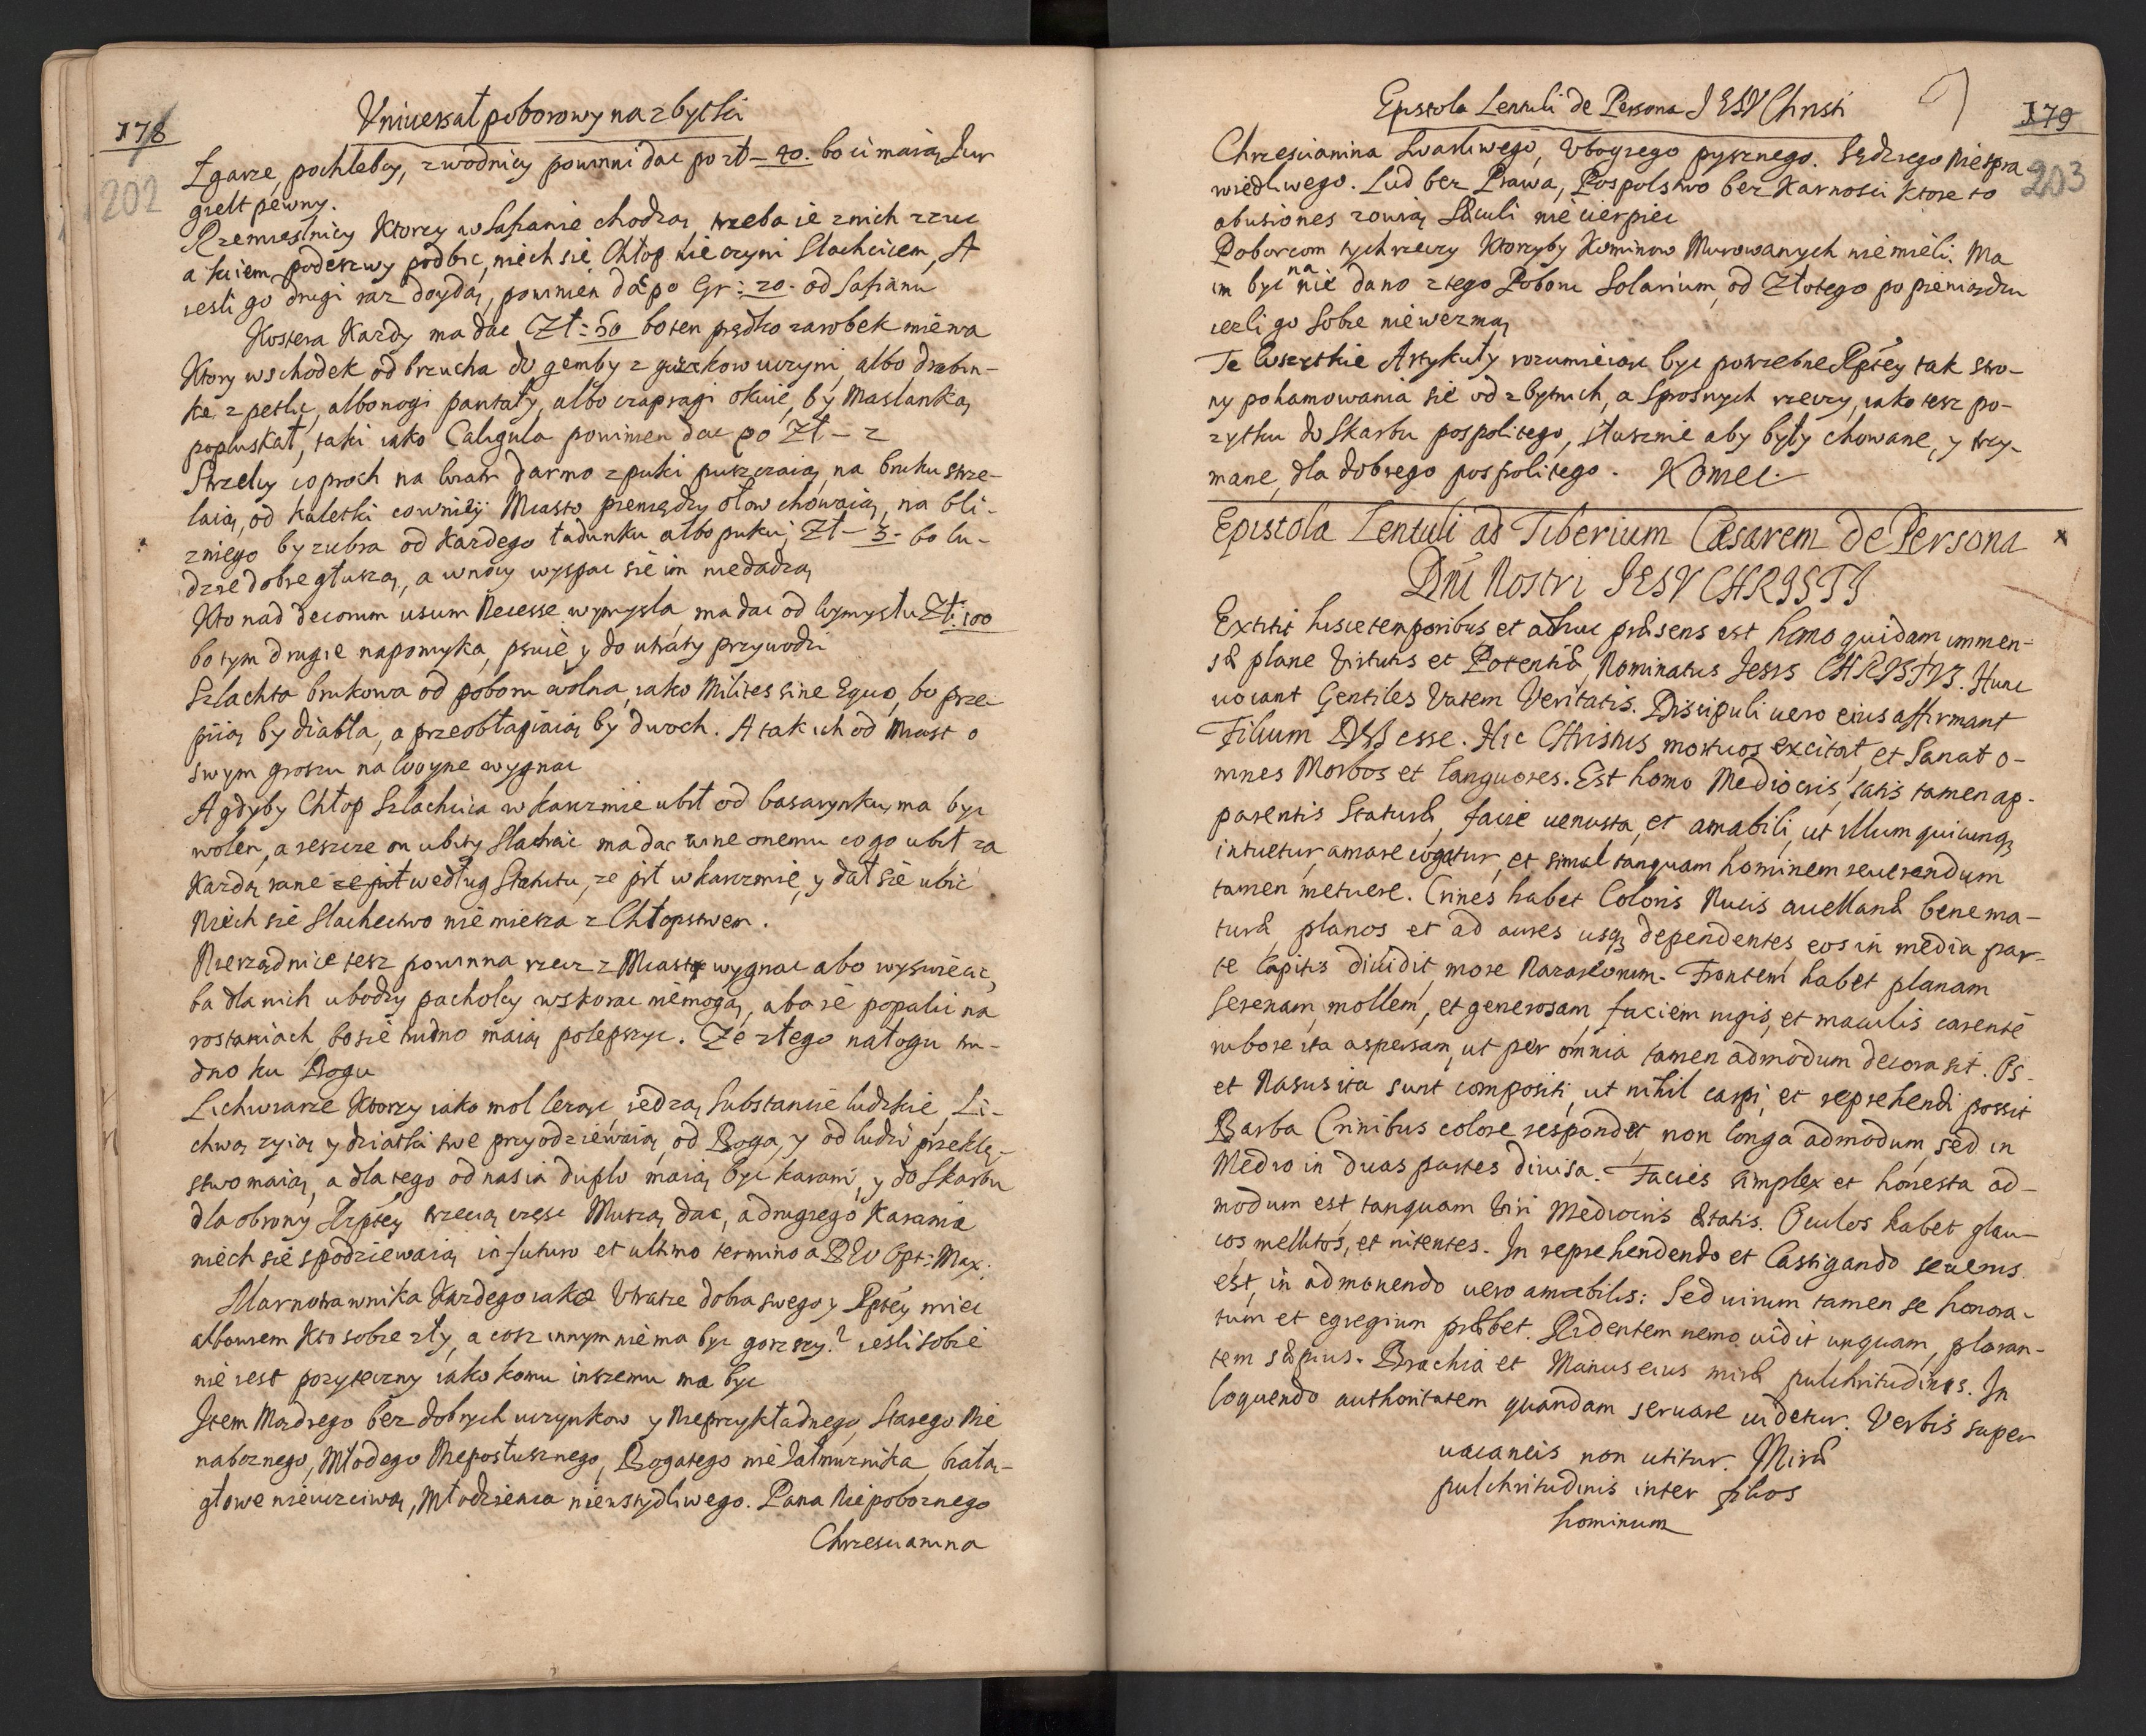 178
202
Vniuersał poborowy na zbytki
Łgarze, pochlebcy, zwodnicy powinni dac po zł – 40. bo ci maią Jur
gielt pewny.
Rzemieslnicy Ktorzy w Safianie chodzą, trzeba ie z nich zzuc
a podeszwy podbic, niech się Chłop nie czyni Slachcicem, A
iesli go drugi raz doydą, powinien dac po Gr: 20. od Safianu
Kostera Kazdy ma dac Zł: 50 bo ten prędko zarobek miewa
Ktory wschodek od brzucha do gemby z guzikow uczyni, albo drabin-
kę z petlic, albo nogi pantały, albo czapragi okuie, by Maslanką
popluskał, taki iako Caligula powinien dac po Zł – 2
Strzelcy co proch na wiatr darmo z puki puszczaią, na bruku strze-
laią, od kaletki co w nięy Miasto pieniędzy ołow chowaią, na bli-
zniego by zubra od Kazdego ładunku albo puku, Zł – 3. bo lu-
dzie dobre głuszą, a w nocy wyspac się im niedadzą
Kto nad decorum usum Necesse wymysla, ma dac od wymysłu Zł: 100
bo tym drugie napomyka, psuie, y do utraty przywodzi
Szlachta brukowa od poboru wolna, iako Milites sine Equo, bo prze-
piią by diabła, a przeobłapiaią by dwoch. A takich od Miast o
swym groszu na woyne wygnac
A gdyby Chłop Szlachcica w karczmie ubił od basarynku, ma byc
wolen, a ieszcze on ubity Slachcic ma dac wine onemu co go ubił za
Kazdą rane według Statutu, ze pił w karczmie, y dał się ubic
Niech się Slachectwo niemiesza z Chłopstwem.
Nierządnice tesz powinna rzecz z Miasta wygnac abo wyswiecic,
ba dla nich ubodzy pacholcy wskorac niemogą, abo ie popalic na
rostaniach, bo się trudno maią polepszyc. Ze złego nałogu tru-
dno ku Bogu
Lichwiarze Ktorzy iako mol leząc iedzą Substancie ludzkie, Li-
chwą zyią y dziatki swe przyodziewaią, od Boga, y od ludzi przeklę-
stwo maią, a dla tego od nas in duplo maią byc karani, y do Skarbu
dla obrony Rzptey trzecią częsc Muszą dac, a drugiego Karania
niech się spodziewaią in futuro et ultimo termino a DEo Opt: Max:
Marnotrawnika Kazdego iako Utratze dobra swego y Rptey miec
albowiem Kto sobie zły, a cosz innym niema byc gorszy? iesli sobie
nie iest pozyteczny iako komu inszemu ma byc
Item Mądrego bez dobrych uczynkow y Nieprzykładnego, Starego Nie
naboznego, Młodego Nieposłusznego, Bogatego nie Iałmuznika, białą-
głowe nieuczciwą, Młodzienca niewstydliwego. Pana Niepoboznego
Chrzescianina
Epistola Lentuli de Persona IESV Christi
179
203
Chrzescianina Swarliwego, Vbogiego pysznego. Sędziego Niespra
wiedliwego. Lud bez Prawa, Pospolstwo bez Karnosci Ktore to
abusiones zowią Sæculi nie cierpiec
Poborcom tych rzeczy Ktorzyby Kominow Murowanych nie mieli. Ma
im byc na nie dano z tego Poboru Solarium, od Złotego po pieniądzu
iezli go Sobie niewezmą
Te wszystkie Artykuły rozumieiąc byc potrzebne Rptey tak stro-
ny pohamowania się od zbytnich, a Sprosnych rzeczy, iako tesz po-
zytku do Skarbu pospolitego, słusznie aby były chowane, y trzy-
mane, dla dobrego pospolitego. Koniec.
Epistola Lentuli ad Tiberium Cæsarem de Persona
Dni Nostri IESV CHRISTI
Extitit hisce temporibus et adhuc præsens est homo quidam immen-
sæ plane Virtutis et Potentiæ, Nominatus Jesus CHRISTVS. Hunc
uocant Gentiles Vatem Veritatis. Discipuli uero eius affirmant
Filium DEI esse. Hic Christus mortuos excitat, et Sanat o-
mnes Morbos et languores. Est homo Mediocris, satis tamen ap-
parentis Staturæ, facie uenusta, et amabili, ut illum quicunq;
intuetur, amare cogatur, et simul tanquam hominem reuerendum
tamen metuere. Crines habet Coloris Nucis auellanæ bene ma-
turæ, planos et ad aures usq; dependentes, eos in media par-
te Capitis diuidit, more Nazaræorum. Frontem habet planam
Serenam, mollem, et generosam, faciem rugis, et maculis carentē
rubore ita aspersam, ut per omnia tamen admodum decora sit. Os
et Nasus ita sunt compositi, ut nihil carpi, et reprehendi possit
Barba Crinibus colore respondet, non longa admodum, sed in
Medio in duas partes diuisa. Facies simplex et honesta ad-
modum est, tanquam Viri Mediocris ætatis. Oculos habet glau-
cos mellitos, et nitentes. In reprehendendo et Castigando seuerus
est, in admonendo uero amabilis: Sed uirum tamen se honora-
tum et egregium præbet. Ridentem nemo uidit unquam, ploran-
tem sæpius. Brachia et Manus eius miræ pulchritudinis. In
loquendo authoritatem quandam seruare uidetur. Verbis super
uacaneis non utitur. Miræ
pulchritudinis inter filios
hominum